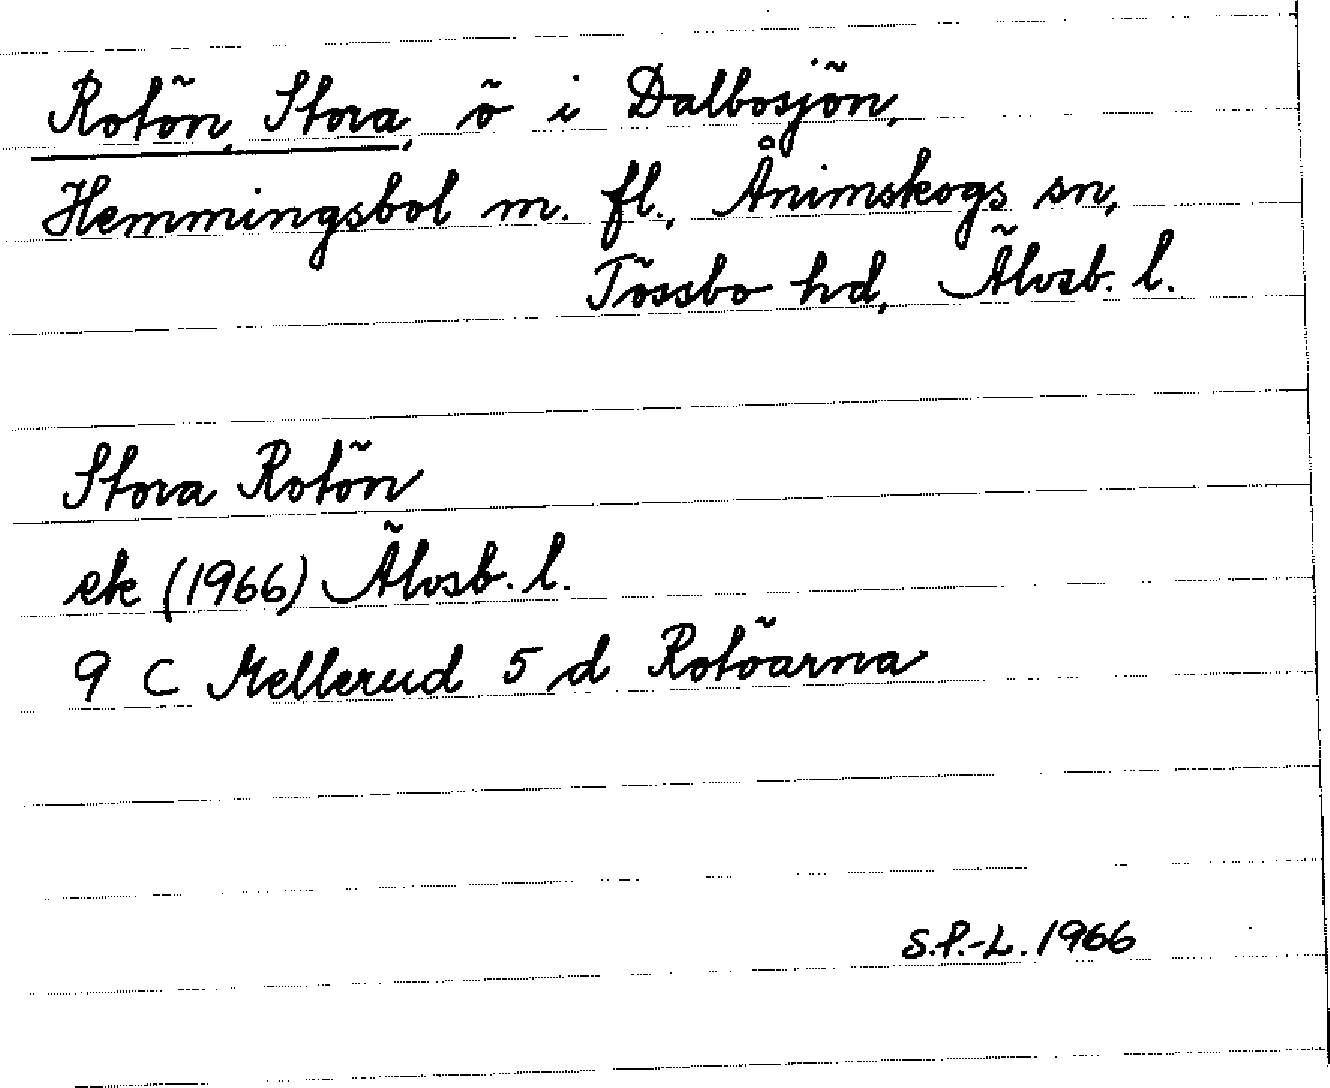 Rotön, Stora, ö i Dalbosjön,
Hemmingsbol m. fl., Ånimskogs sn,
Tössbo hd, Älvsb. l.
Stora Rotön
ek (1966) Älvsb. l.
9 C Mellerud 5 d Rotöarna
S.P.-L. 1966